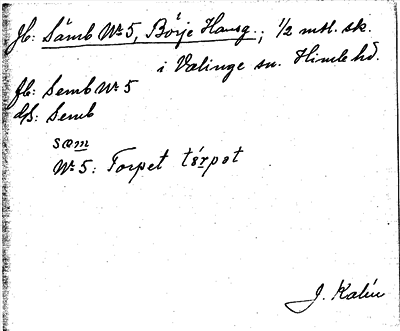 Jb: Sämb No 5, Börje Hansg.; 1/2 mtl. sk.
i Valinge sn. Himle hd.
Jb: Semb No 5
ds: Semb
sæm
No 5: Torpet tórpət
J. Kalén